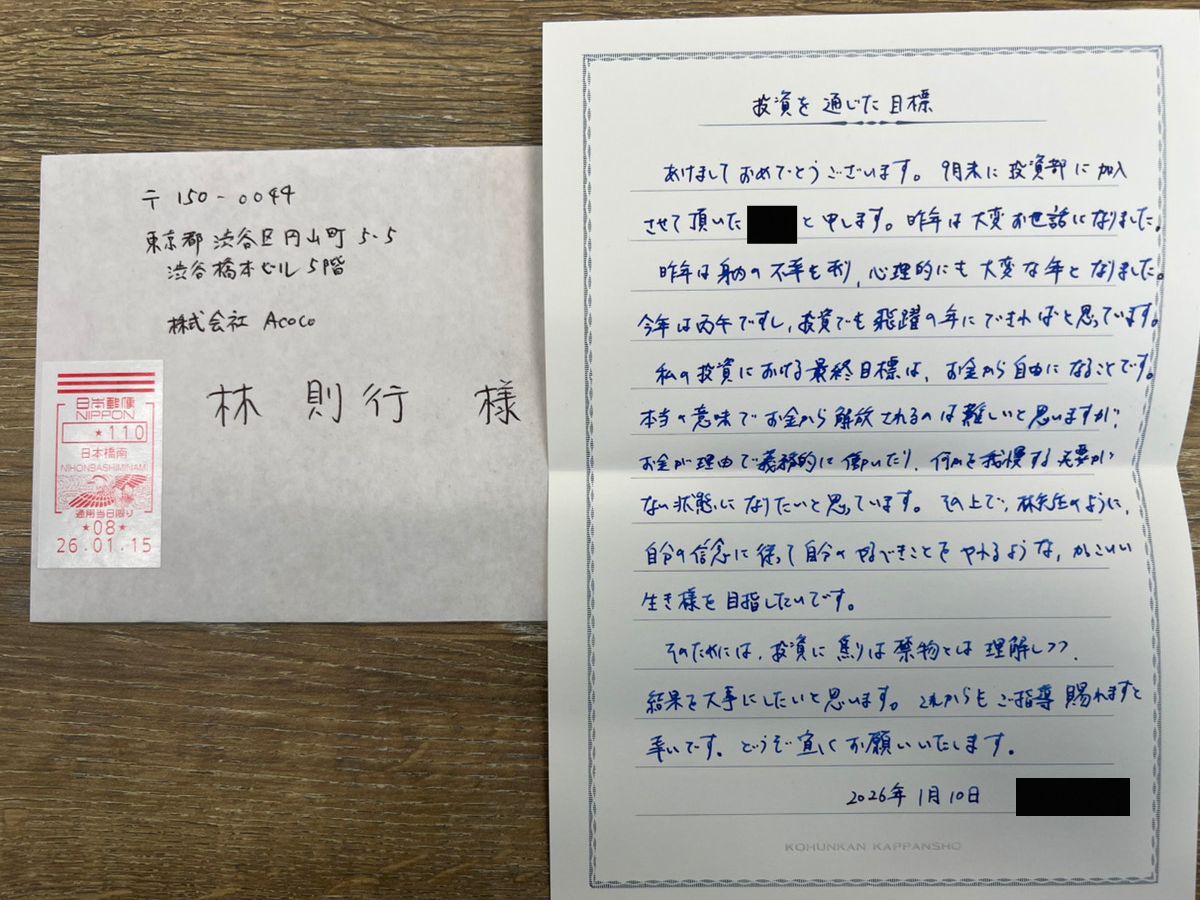 〒150-0044
東京都渋谷区円山町5-5
渋谷橋本ビル5階
株式会社 Acoco
林 則行 様
日本郵便
NIPPON
★110
日本橋南
NIHONBASHIMINAMI
適用当日限り
★08★
26.01.15
投資を通じた目標
あけましておめでとうございます。9月末に投資部に加入
させて頂いた と申します。昨年は大変お世話になりました。
昨年は身内の不幸も有り、心理的にも大変な年となりました。
今年は丙午ですし、投資でも飛躍の年にできればと思っています。
私の投資における最終目標は、お金から自由になることです。
本当の意味でお金から解放されるのは難しいと思いますが、
お金が理由で義務的に働いたり、何かを我慢する必要が
ない状態になりたいと思っています。その上で、林先生のように、
自分の信念に従って自分のやるべきことをやれるような、かっこいい
生き様を目指したいです。
そのためには、投資に焦りは禁物とは理解しつつ、
結果を大事にしたいと思います。これからもご指導賜れますと
幸いです。どうぞ宜しくお願いいたします。
2026年1月10日
KOHUNKAN KAPPANSHO